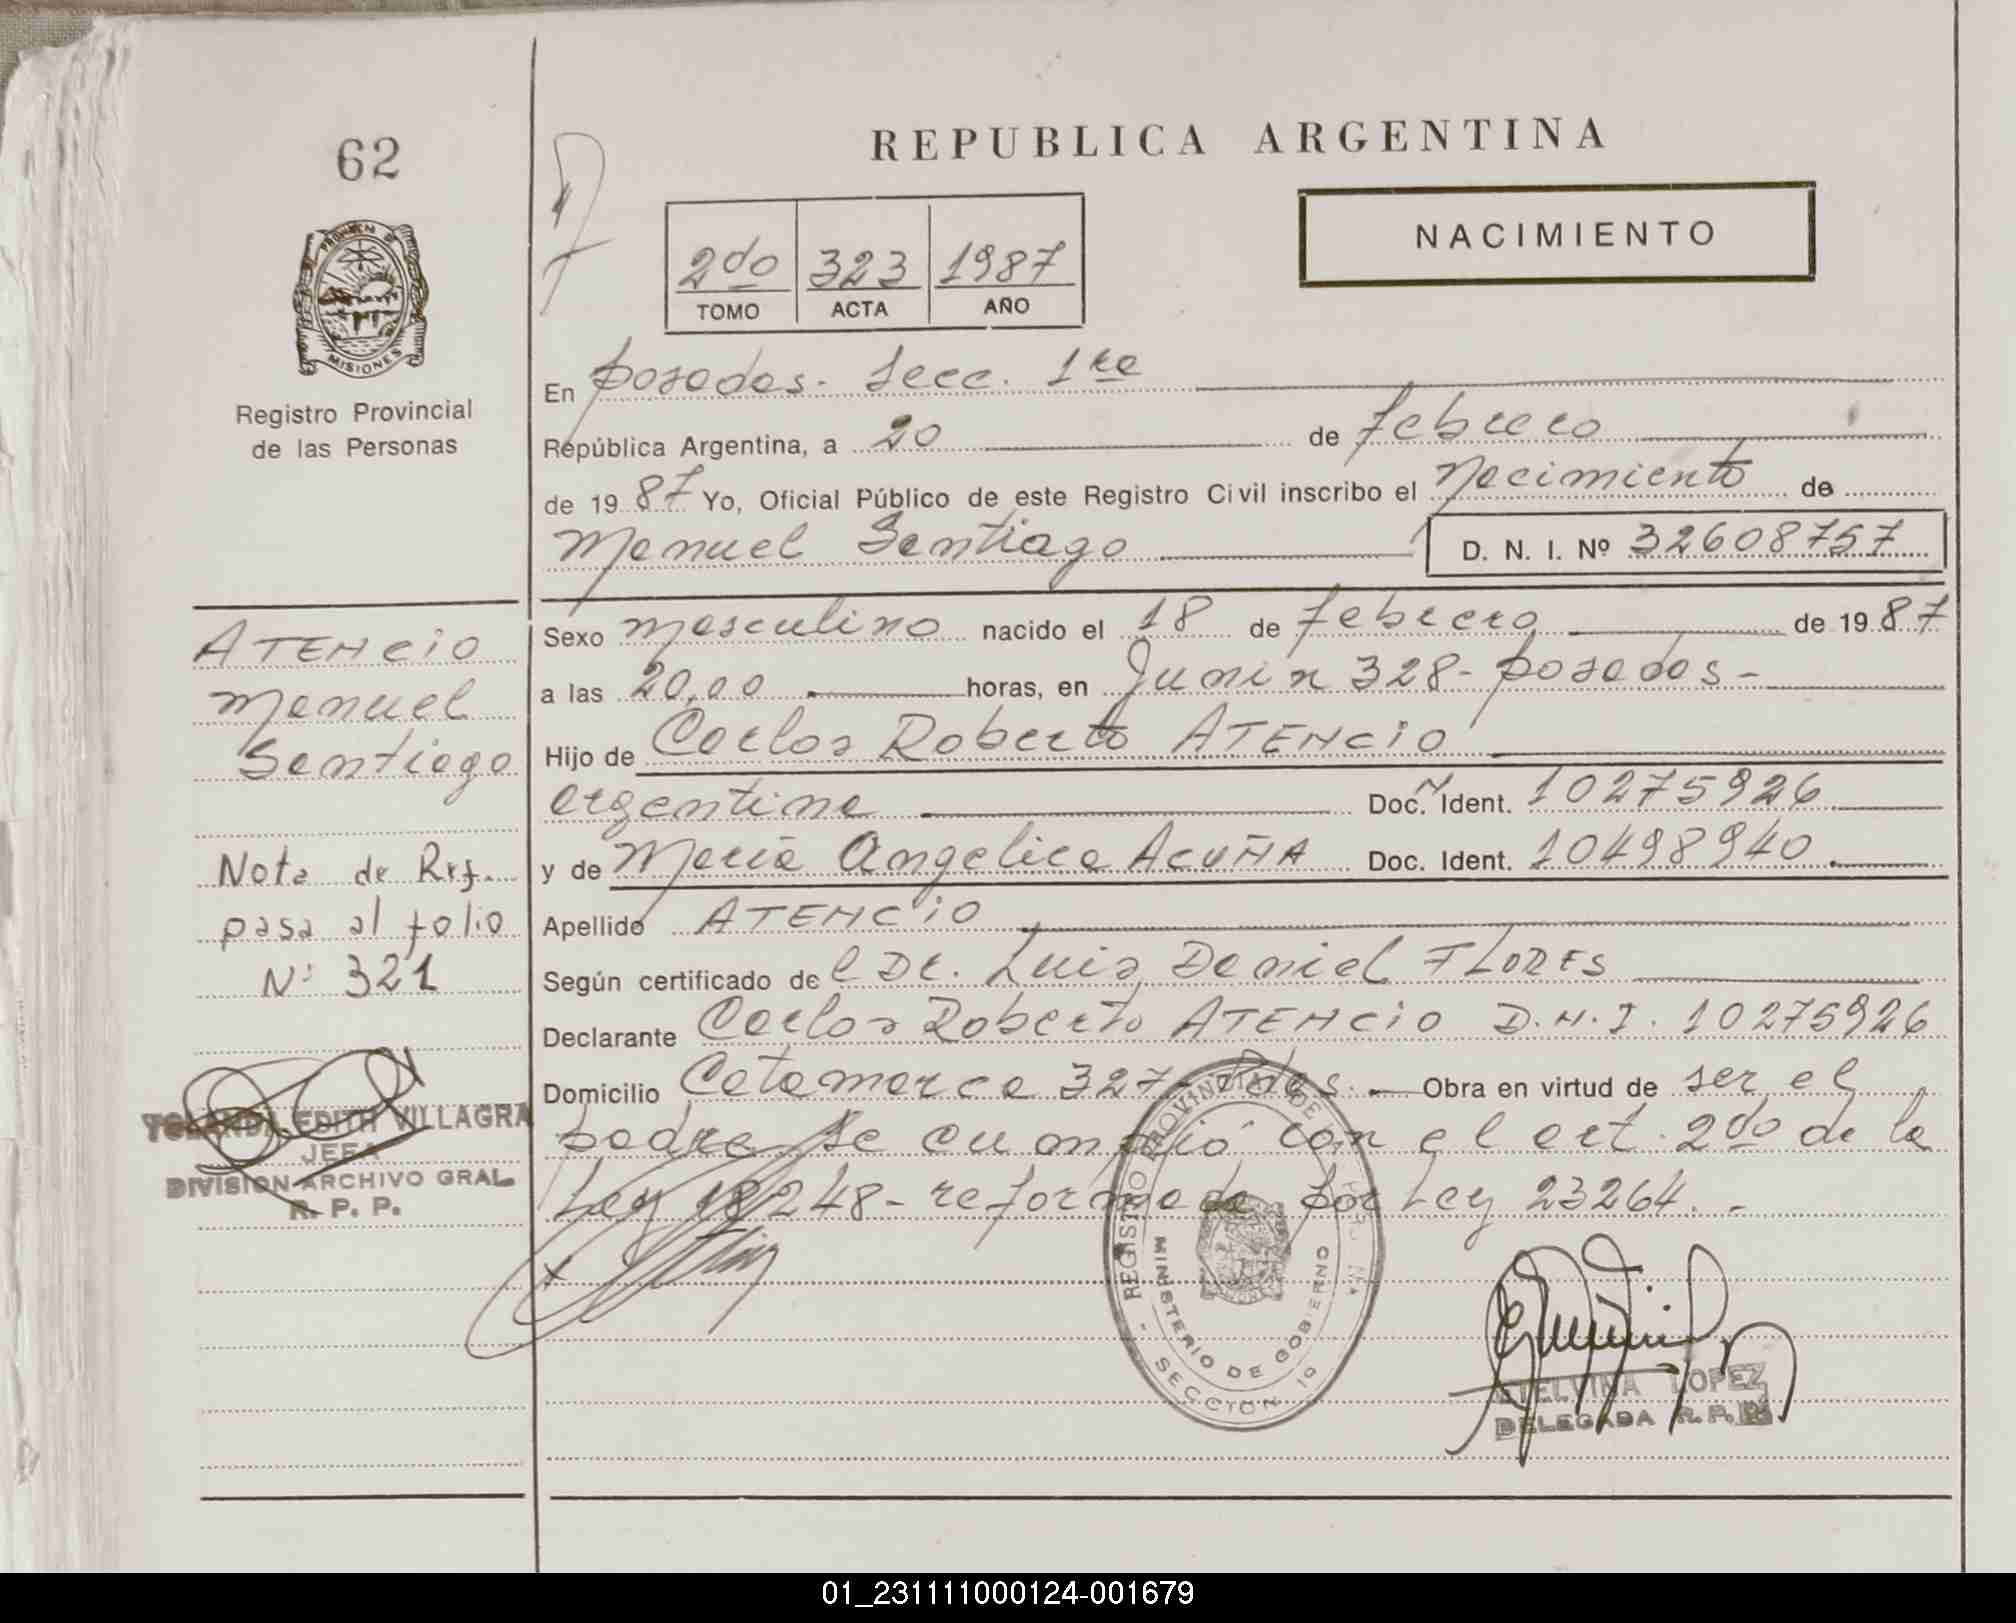 62
REPUBLICA ARGENTINA
NACIMIENTO
2do 323 1987
TOMO ACTA AÑO
PROVINCIA DE MISIONES
Registro Provincial
de las Personas
En Posadas - Secc. 1ra
República Argentina, a 20 de febrero
de 1987 Yo, Oficial Público de este Registro Civil inscribo el Nacimiento de
Manuel Santiago D. N. I. Nº 32608757
Sexo masculino nacido el 18 de febrero de 1987
a las 20,00 horas, en Junin 328 - Posadas -
Hijo de Carlos Roberto ATENCIO
argentina Doc. Ident. 10275926
y de Maria Angelica ACUÑA Doc. Ident. 10498940.
Apellido ATENCIO
Según certificado del Dr. Luis Daniel FLORES
Declarante Carlos Roberto ATENCIO D.N.I. 10275926
Domicilio Catamarca 327 - Pdas. - Obra en virtud de ser el
padre Se cumplió con el art. 2do de la
Ley 18248 - reformada por Ley 23264. -
ATENCIO
Manuel
Santiago
Nota de Ref.
pasa al folio
Nº 321
YOLANDA EDITH VILLAGRA
JEFA
DIVISION ARCHIVO GRAL.
R. P. P.
REGISTRO PROVINCIAL DE
MINISTERIO DE GOBIERNO
- SECCION 1º
ETELVINA LOPEZ
DELEGADA R. P. P.
01_231111000124-001679